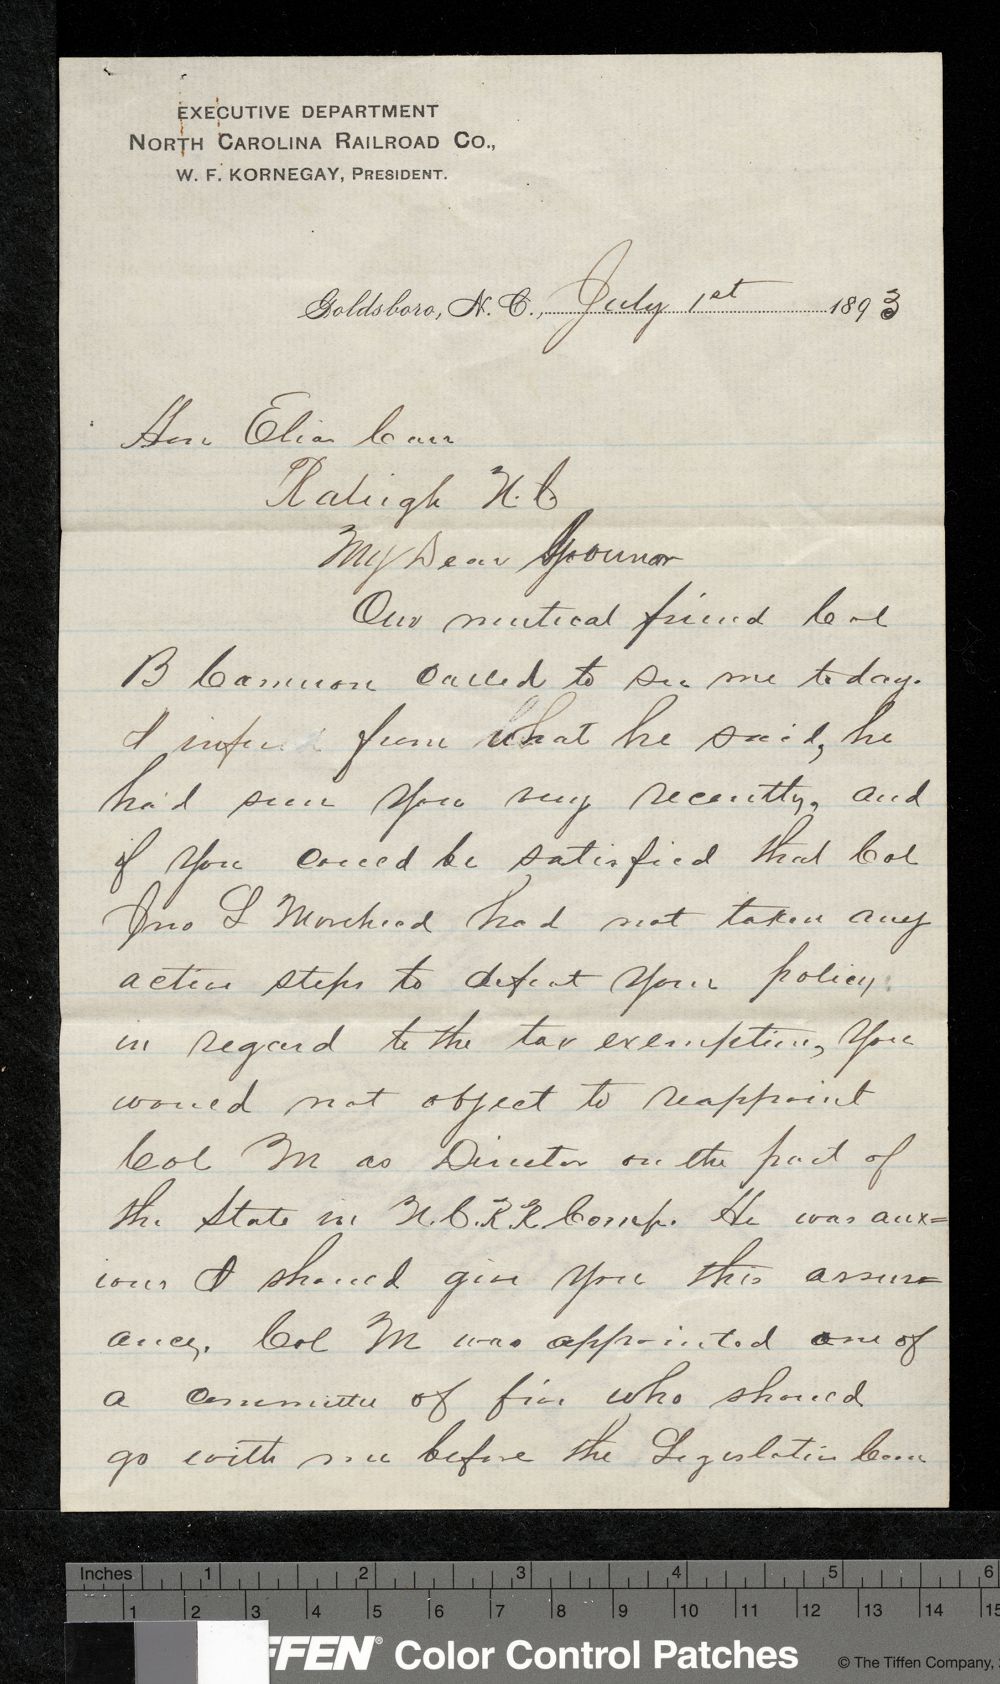 EXECUTIVE DEPARTMENT
NORTH CAROLINA RAILROAD CO.,
W. F. KORNEGAY, PRESIDENT.
Goldsboro, N. C., July 1st 1893
Hon Elias Carr
Raleigh N. C.
My Dear Govunor
Our mutical friend Col
B Cameron called to see me today.
I infer from what he said, he
had seen you very recently, and
if you could be satisfied that Col
Jno L Morehead had not taken any
active steps to defeat your policy
in regard to the tax exemption, you
would not object to reappoint
Col M as Director on the part of
the State in N.C.R.R. Comp. He was anx=
ious I should give you this assur=
ance. Col M was appointed one of
a committee of five who should
go with me before the Legislative Com
Inches 1 2 3 4 5 6
1 2 3 4 5 6 7 8 9 10 11 12 13 14 15
FFEN® Color Control Patches © The Tiffen Company,